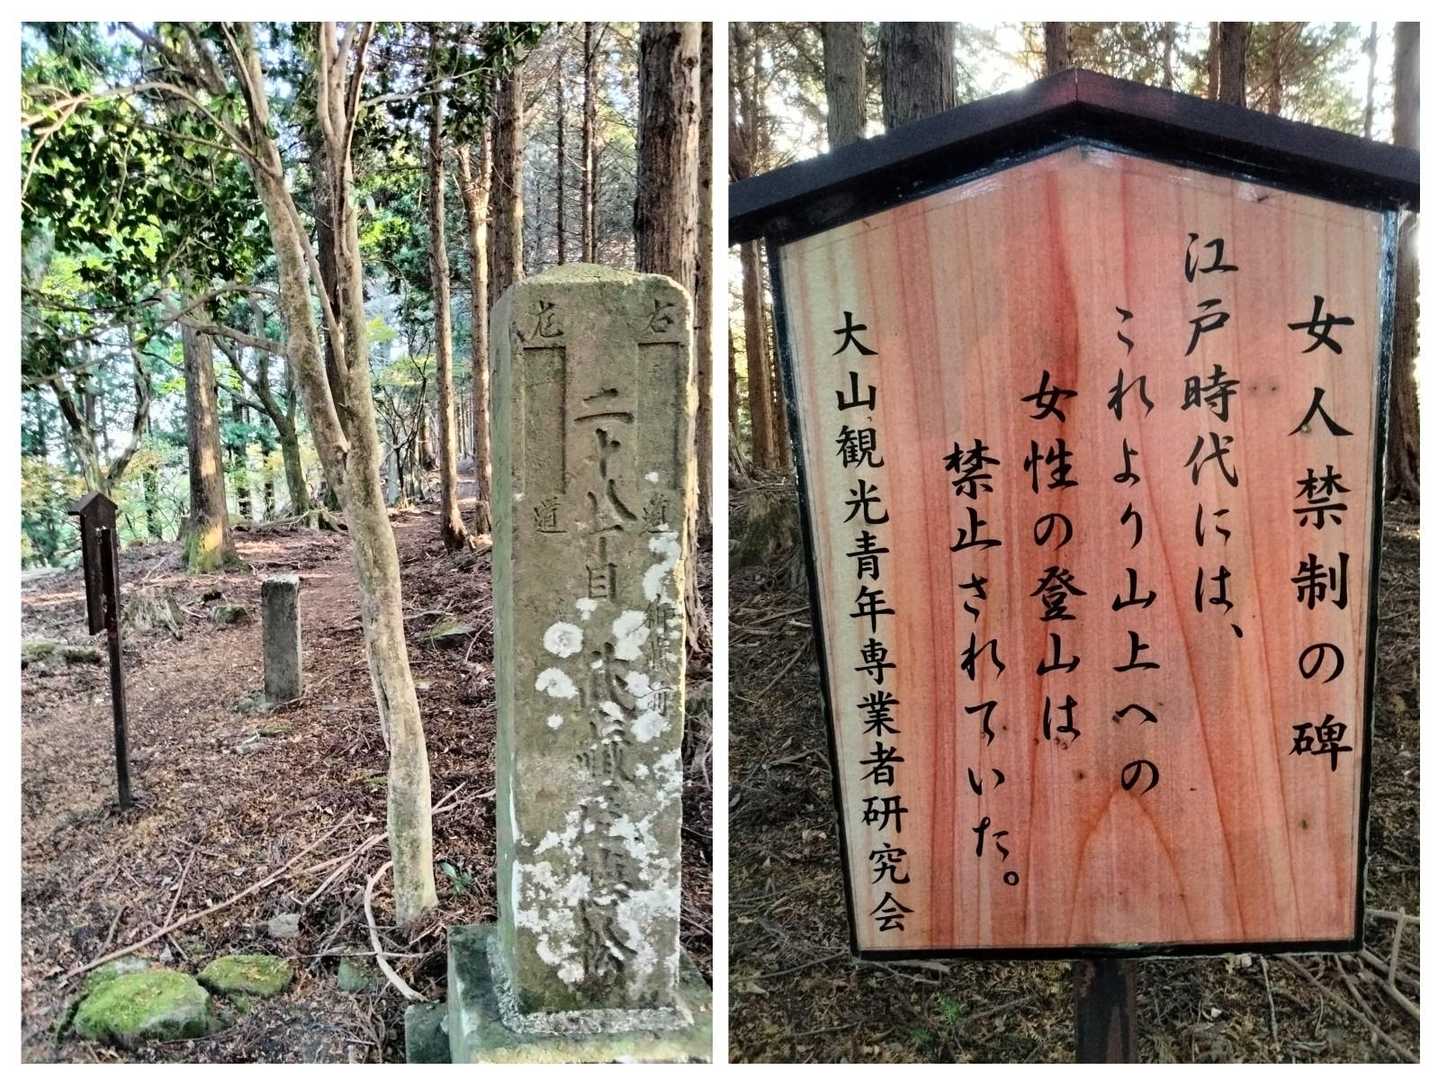 右
道
二十八丁目
左
道
女人禁制の碑
江戸時代には、
これより山上への
女性の登山は
禁止されていた。
大山観光青年専業者研究会